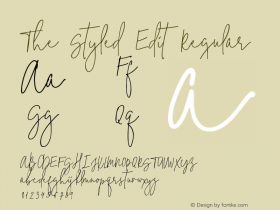 The Styled Edit Regular
Aa
Ff
Gg
Qq
a
ABCDEFGHIJKLMNOPQRSTUVWXYZ
abcdefghijklmnopqrstuvwxyz
0123456789
Designed by fontke.com